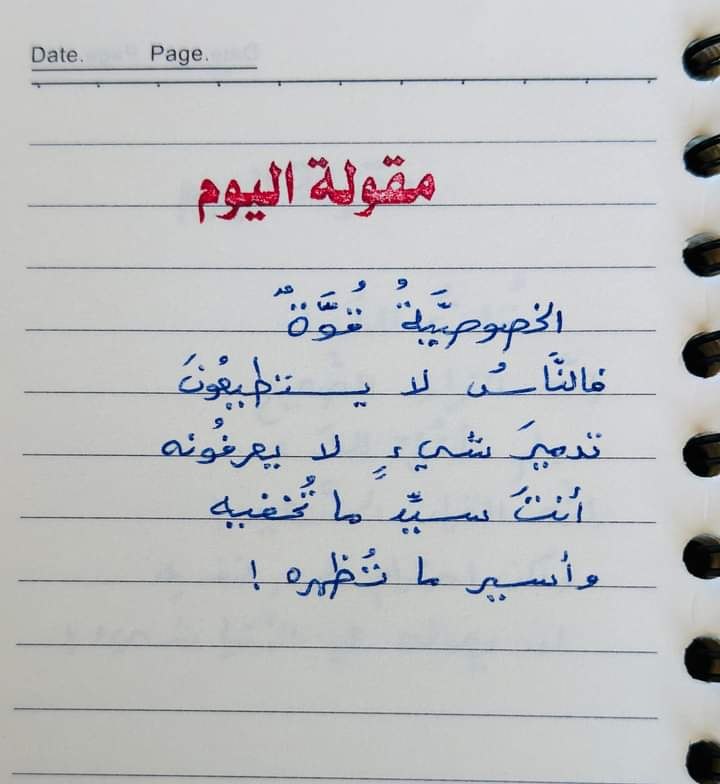 Date. Page.
مقولة اليوم
الخصوصيَّةُ قُوَّةٌ
فالنَّاسُ لا يستطيعُونَ
تدميرَ شيءٍ لا يعرفُونه
أنتَ سيِّد ما تُخفيه
وأسير ما تُظهره !